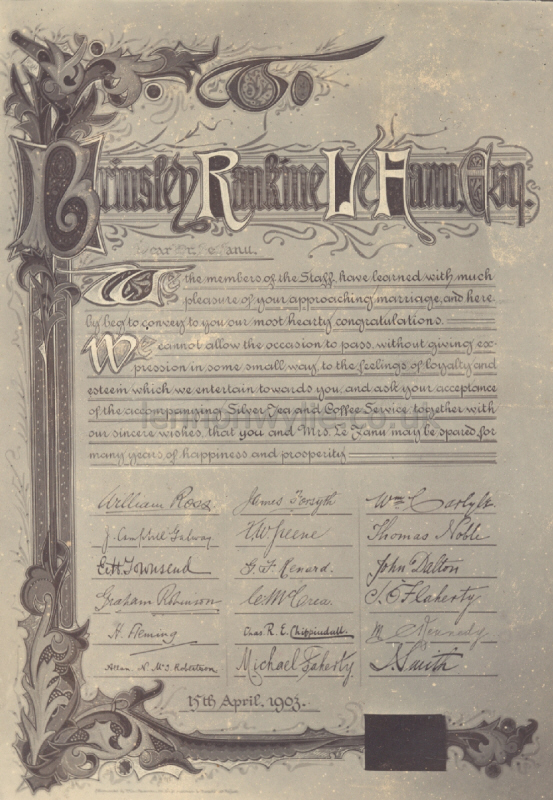 To
Brinsley Rankine Le Fanu, Esq.
Dear Mr. Le Fanu.
We the members of the Staff, have learned with much
pleasure of your approaching marriage, and here-
by beg to convey to you our most hearty congratulations.
We cannot allow the occasion to pass, without giving ex-
pression in some small way, to the feelings of loyalty and
esteem which we entertain towards you, and ask your acceptance
of the accompanying Silver Tea and Coffee Service, together with
our sincere wishes, that you and Mrs. Le Fanu may be spared for
many years of happiness and prosperity
William Ross. James Forsyth Wm. Carlyle.
J. Campbell Galway Greene Thomas Noble
Townsend Kenard. John Dalton
Graham Robinson McCrea. O'Flaherty
H. Fleming Chas. R. E. Chippindall. M Kennedy
Allan N. McS. Robertson Michael Faherty J. Smith
15th April, 1903.